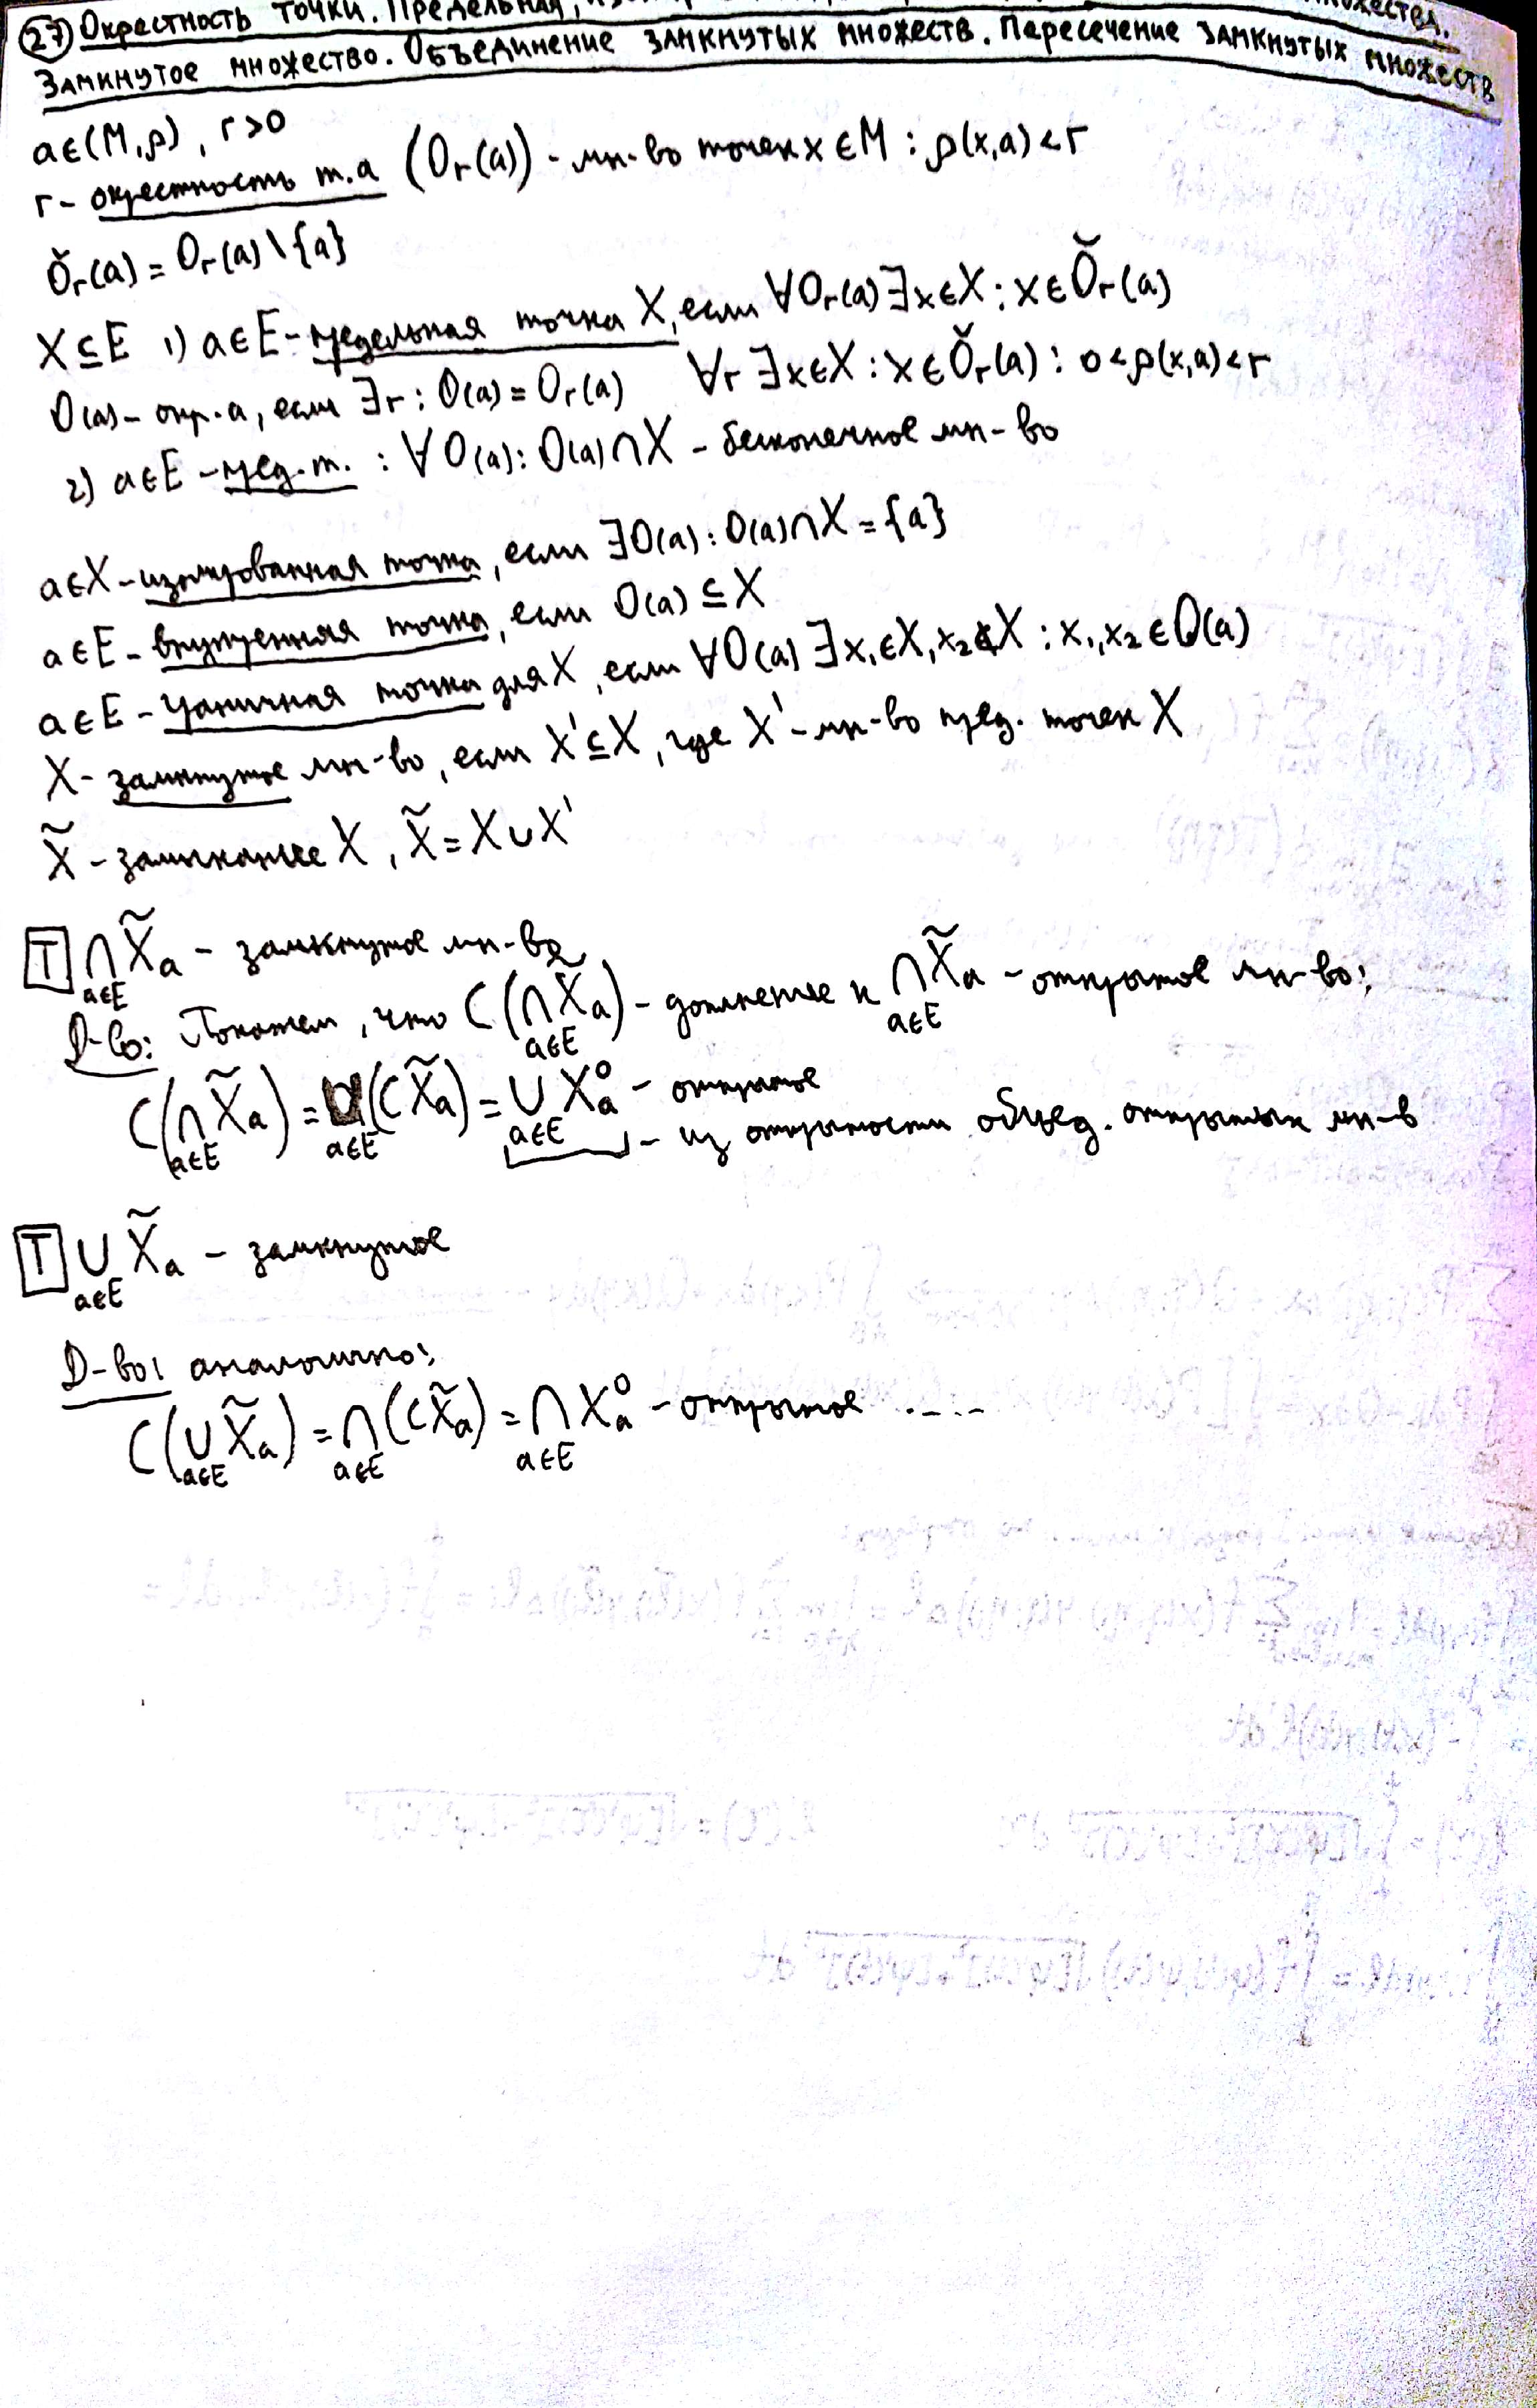 27 Окрестность точки. Предельная, множества.
Замкнутое множество. Объединение замкнутых множеств. Пересечение замкнутых множеств
a∈(M,ρ), r>0
r- окрестность т.a (Oᵣ(a)) - мн-во точек x∈M : ρ(x,a)<r
Ǒᵣ(a) = Oᵣ(a)\{a}
X⊆E 1) a∈E - предельная точка X, если ∀Oᵣ(a) ∃x∈X : x∈Ǒᵣ(a)
O(a) - окр. a, если ∃r : O(a) = Oᵣ(a) ∀r ∃x∈X : x∈Ǒᵣ(a) : 0<ρ(x,a)<r
2) a∈E - пред. т. : ∀O(a) : O(a)∩X - бесконечное мн-во
a∈X - изолированная точка, если ∃O(a) : O(a)∩X = {a}
a∈E - внутренняя точка, если O(a)⊆X
a∈E - граничная точка для X, если ∀O(a) ∃x₁∈X, x₂∉X : x₁, x₂∈O(a)
X - замкнутое мн-во, если X'⊆X, где X' - мн-во пред. точек X
X̃ - замыкание X, X̃ = X∪X'
T ∩ X̃ₐ - замкнутое мн-во
a∈E
Д-во: Покажем, что C(∩ X̃ₐ) - дополнение к ∩ X̃ₐ - открытое мн-во:
a∈E a∈E
C(∩ X̃ₐ) = ∪(CX̃ₐ) = ∪ Xₐ⁰ - открытое
a∈E a∈E a∈E - из открытости объед. открытых мн-в
T ∪ X̃ₐ - замкнутое
a∈E
Д-во: аналогично:
C(∪ X̃ₐ) = ∩(CX̃ₐ) = ∩ Xₐ⁰ - открытое ....
a∈E a∈E a∈E